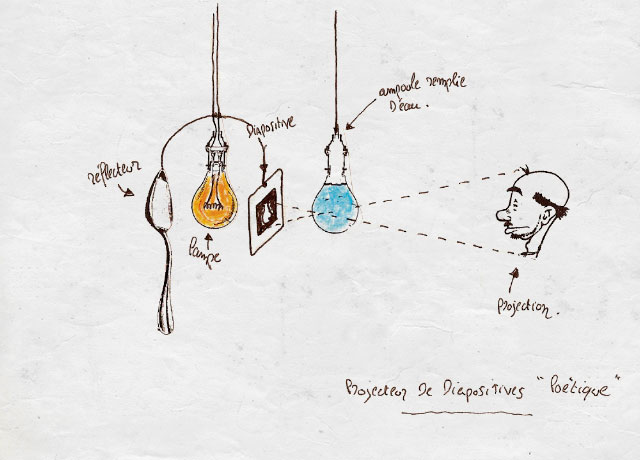 ampoule remplie
D'eau.
Diapositive
réflecteur
Lampe
Projection.
Projecteur De Diapositives "Poétique"